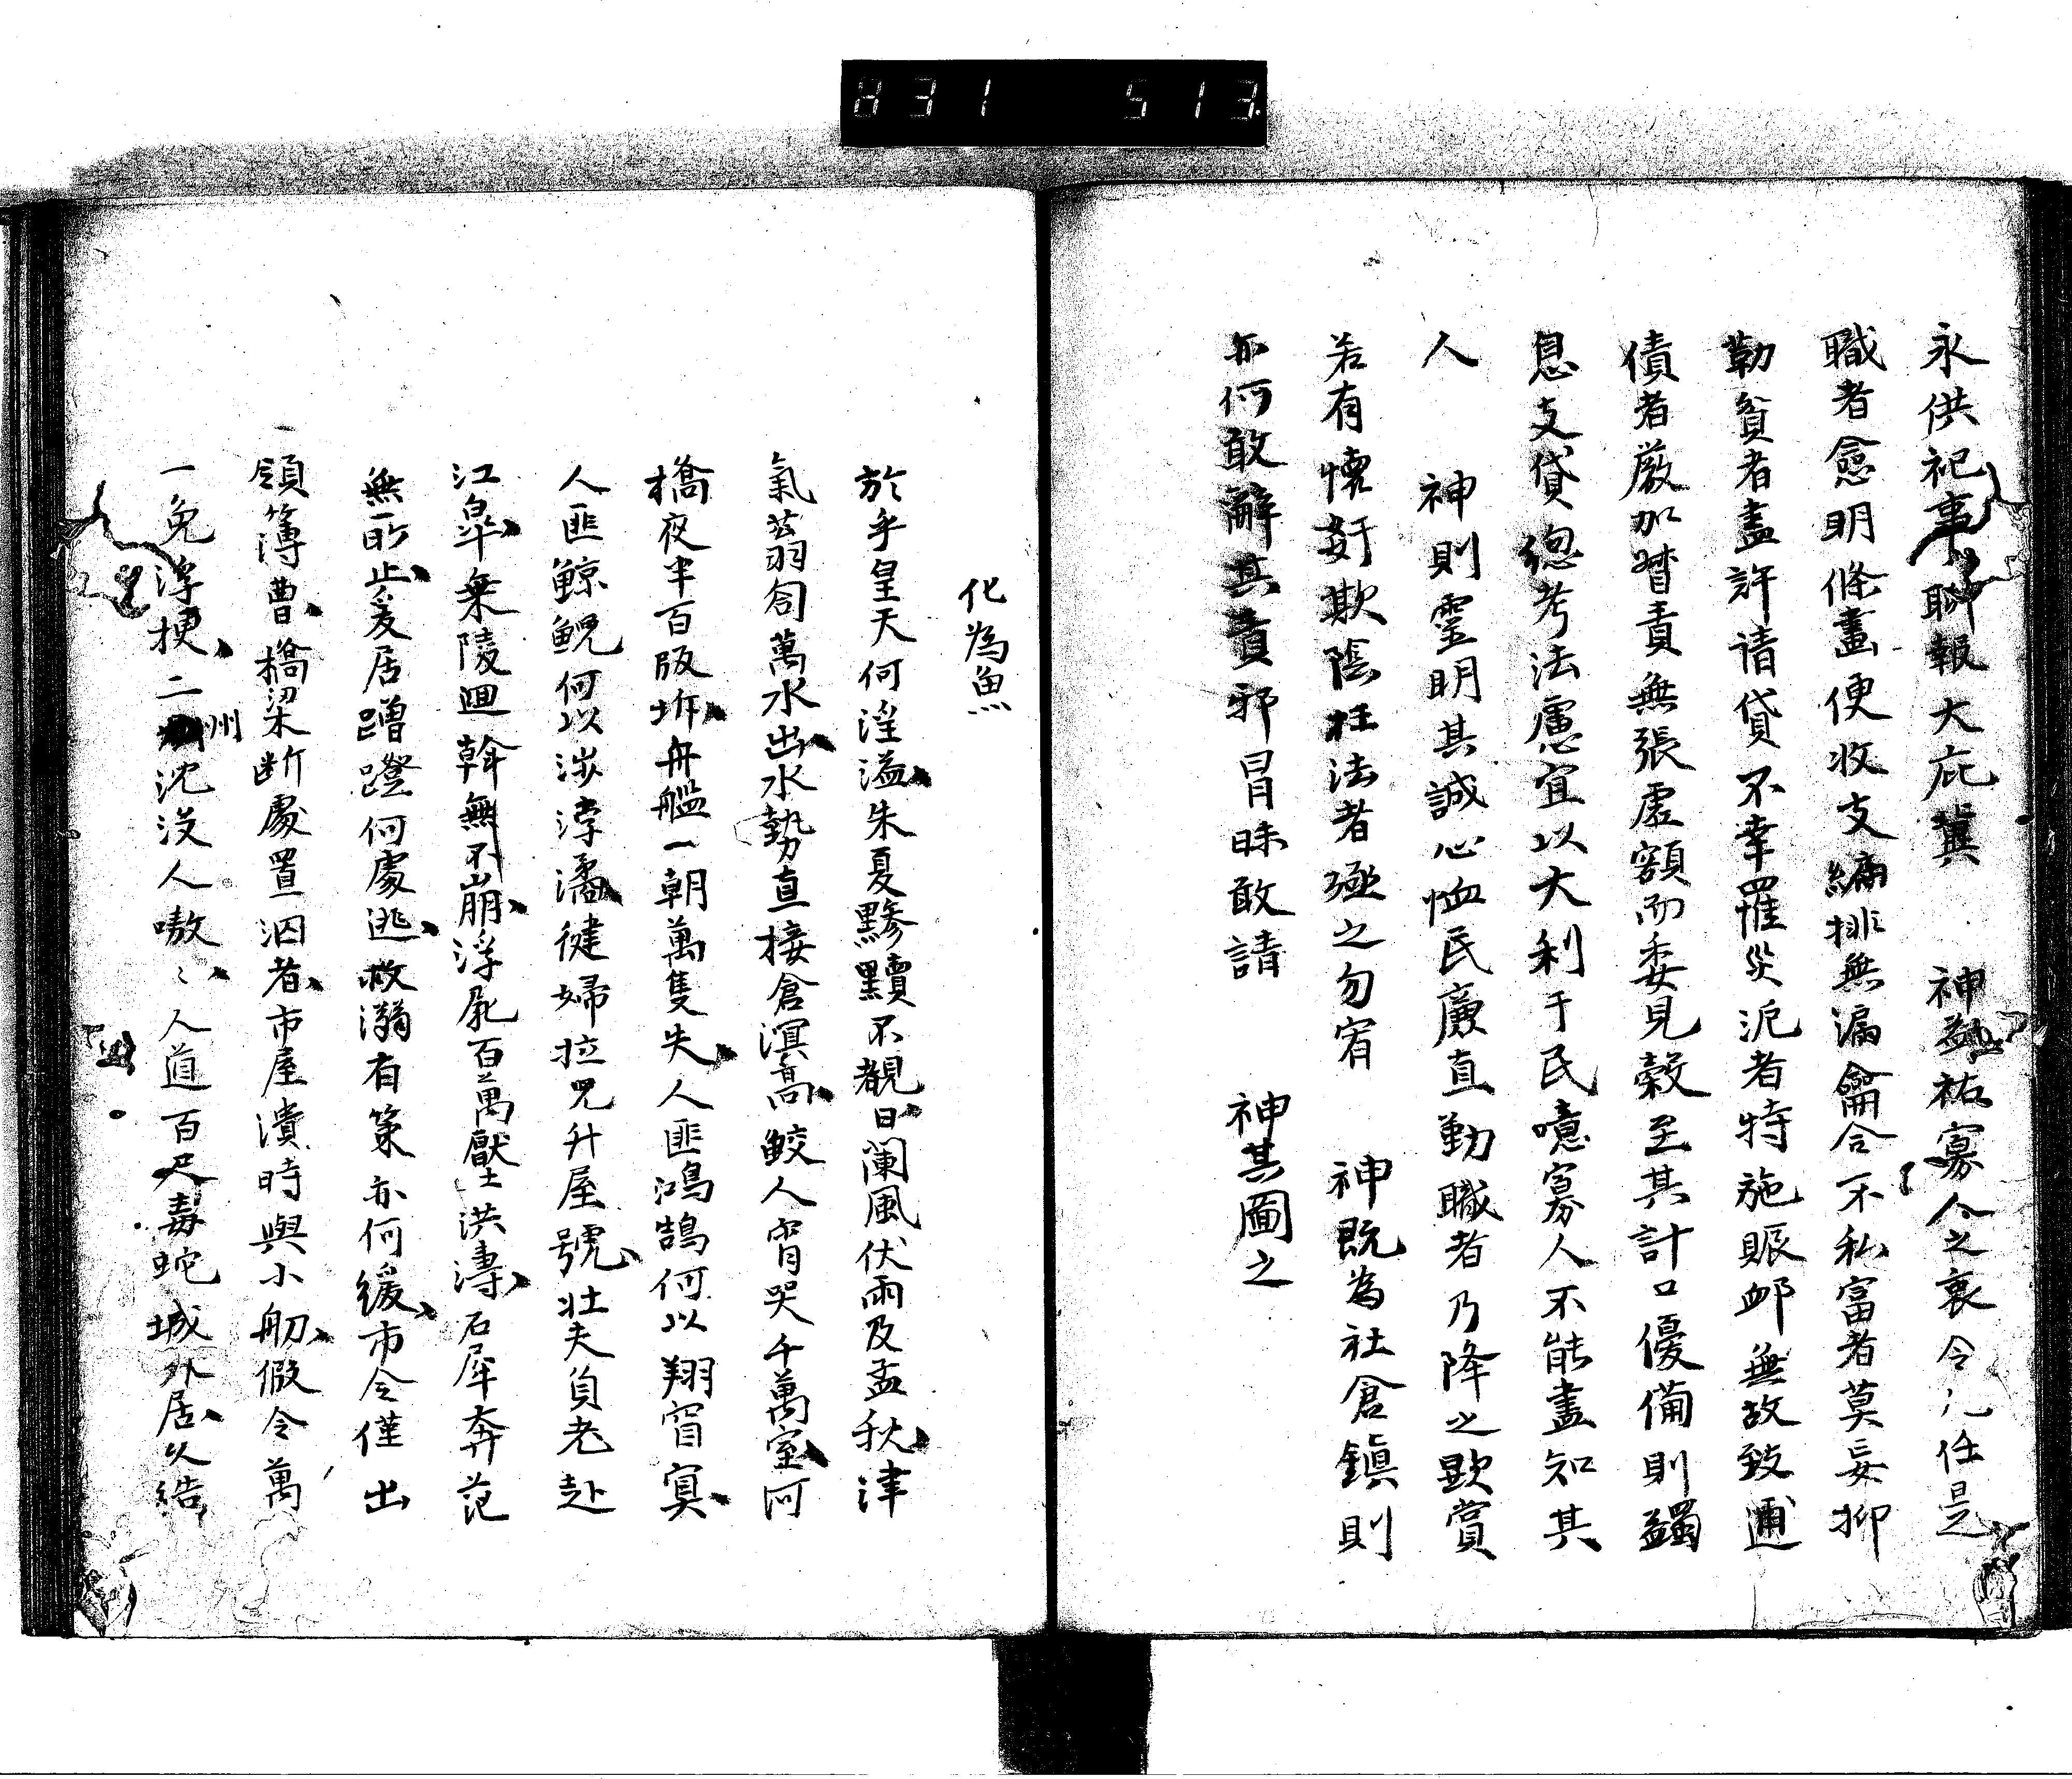 831 513
永供祀事聊報大庇冀 神益祐寡人之衷令凡任是
職者愈明條畫便收支編排無漏龠合不私富者莫妄抑
勒貧者盡許請貸不幸罹災沴者特施賑卹無故致逋
債者嚴加督責無張虛額而委見穀至其計口優備則蠲
息支貸總考法慮宜以大利于民噫寡人不能盡知其
人 神則靈明其誠心恤民廉直勤職者乃降之歆賞
若有懷奸欺陰枉法者殛之勿宥 神既為社倉鎮則
亦何敢辭其責邪冒昧敢請 神其圖之
化為魚
於乎皇天何淫溢朱夏黲黷不觀日闌風伏雨及孟秋津
氣蓊匌萬水出水勢直接倉溟高鮫人宵哭千萬室河
橋夜半百版坼舟艦一朝萬隻失人匪鴻鵠何以翔窅寞
人匪鯨鯢何以涉渟潏健婦拉兒升屋號壯夫負老赴
江皐乗陵迴斡無不崩浮屍百萬厭洪濤石犀奔茫
無所止爰居蹭蹬何處逃救溺有策亦何緩市令僅出
領簿曹橋梁断處置泅者市屋潰時與小舠假令萬
一免浮梗二州沈没人嗷〻人道百尺毒蛇城外居久結